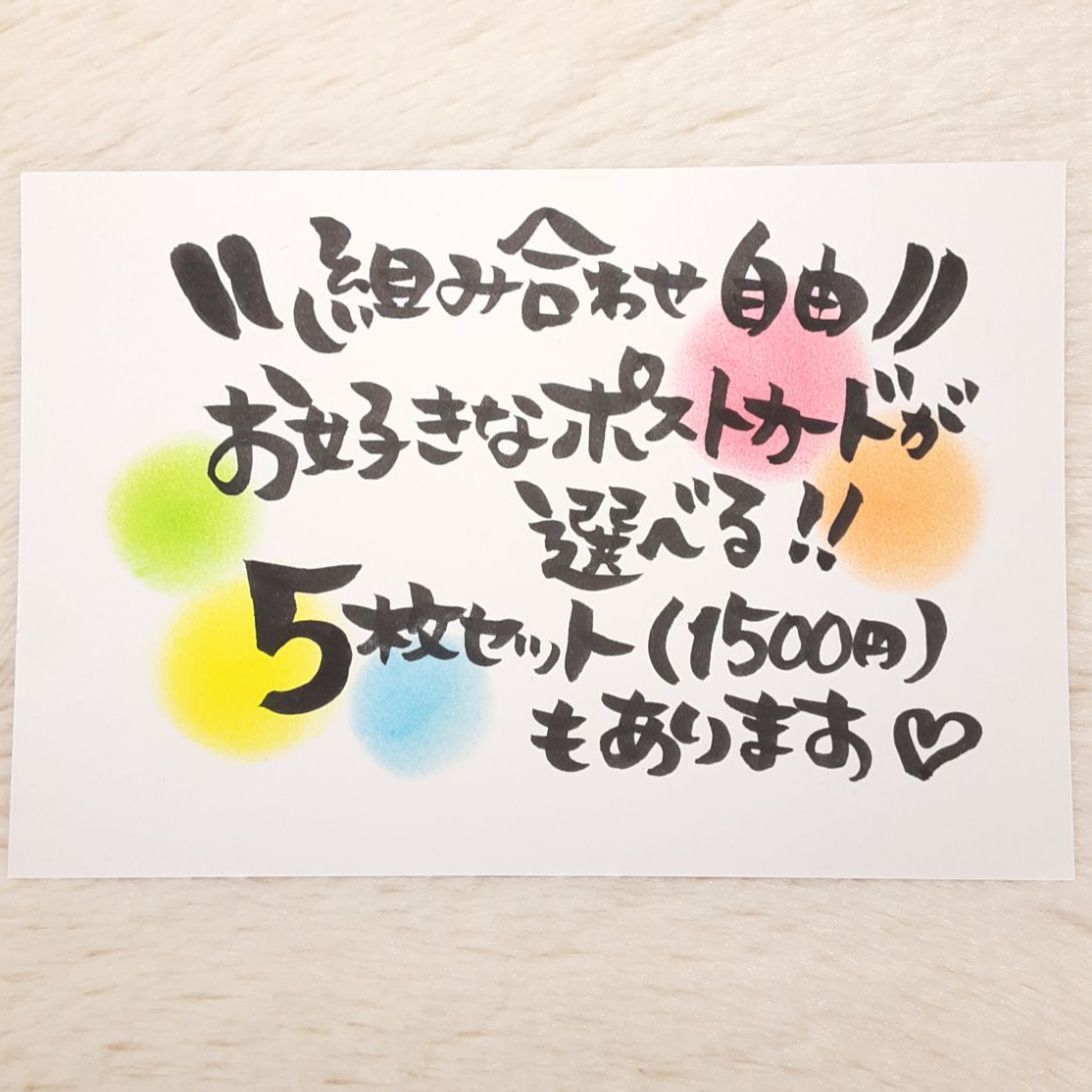 \\組み合わせ自由//
お好きなポストカードが
選べる!!
5枚セット(1500円)
もあります♡